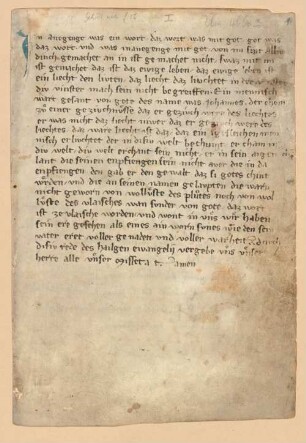 n anegenge was ein wort daz wort was mit got got was
daz wort und was in anegenge mit got von im sint alle
dinch gemachet an in ist gemachet nicht swaz mit im
ist gemachet daz ist daz ewige leben daz ewige leben ist
ein liecht den livten daz liecht daz livchtet in der
div vinster mach sein niht begreiffen Ein mennisch
wart gesant von gote des name was Johannes der chom
zv einer gezivchnusse daz er gezivch were des liechtes
er was niht daz liecht niwer daz er gezivch were des
liechtes daz ware liecht ist daz daz ein iglichen men
nisch erlivchtet der in dise welt bechumt er cham in
div welt div welt erchant sein niht er in sein aigen
lant die seinen enpfiengen sein niht aver die in da
enpfiengen den gab er den gewalt daz si gotes chint
werden und die an seinen namen gelaupten die warn
niht geworn von wolluste des plutes noch von wol
luste des vlaisches wan sunder von gote daz wort
ist ze vlaische worden und wont in uns wir haben
sein ere gesehen als eines ain worn sunes wie den sein
vater eret voller genaden und voller warheit durch
dise rede des hailgen ewangelij vergebe uns unser
herre alle unser misset a t amen